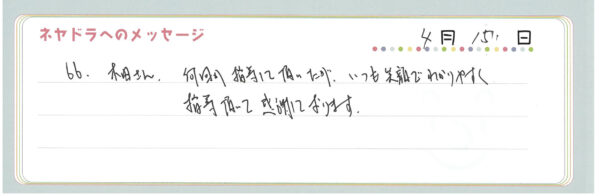 ネヤドラへのメッセージ
4月15日
66. 本田さん、何回か指導して頂いたが、いつも笑顔でわかりやすく
指導頂いて感謝しております。